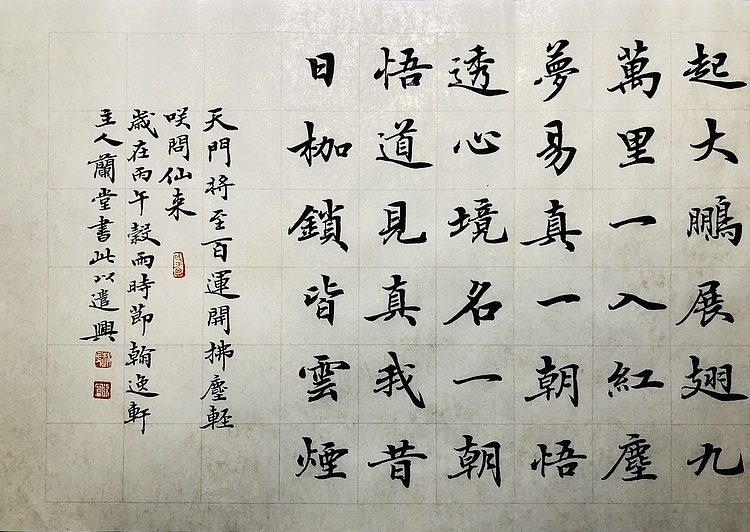 起大鵬展翅九
萬里一入紅塵
夢易真一朝悟
透心境名一朝
悟道見真我昔
日枷鎖皆雲煙
天門将至百運開拂塵軽
咲問仙来
歳在丙午穀雨時節翰逸軒
主人蘭堂書此以遣興